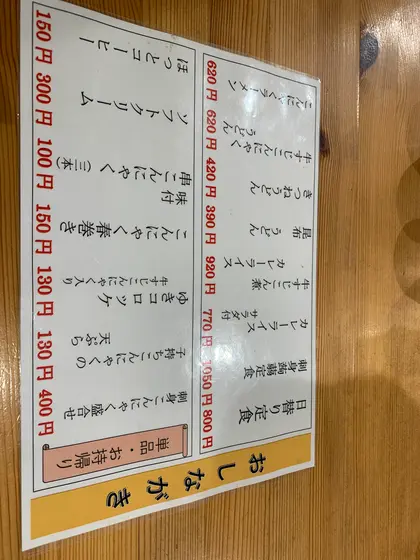 おしながき
日替り定食
800円
刺身蒟蒻定食
1050円
カレーライス
サラダ付
770円
牛すじこん煮
カレーライス
920円
昆布うどん
390円
きつねうどん
420円
牛すじこんにゃく
うどん
620円
こんにゃくラーメン
620円
単品・お持帰り
刺身こんにゃく盛合せ
400円
子持ちこんにゃくの
天ぷら
130円
ゆきコロッケ
牛すじこんにゃく入り
130円
こんにゃく春巻き
150円
味付
串こんにゃく(三本)
100円
ソフトクリーム
300円
ほっとコーヒー
150円